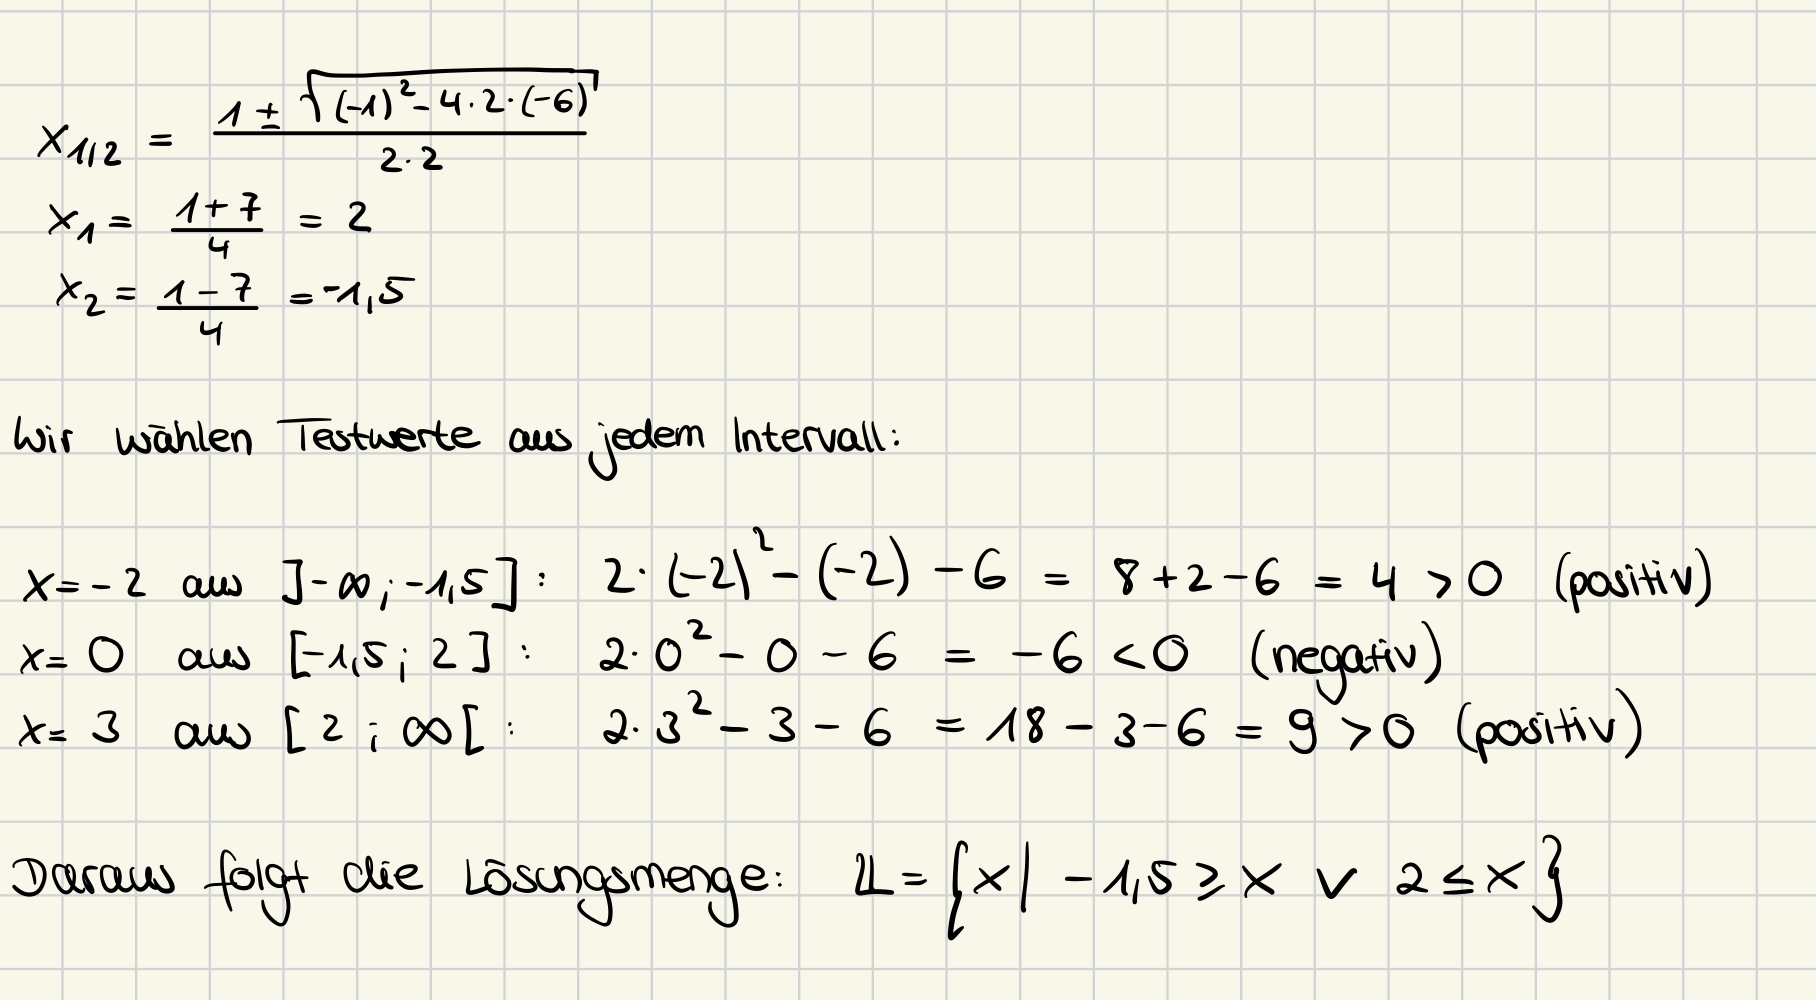 x₁/₂ = (1 ± √((-1)² - 4·2·(-6))) / (2·2)
x₁ = (1+7)/4 = 2
x₂ = (1-7)/4 = -1,5
Wir wählen Testwerte aus jedem Intervall:
x = -2 aus ]-∞; -1,5]: 2·(-2)² - (-2) - 6 = 8 + 2 - 6 = 4 > 0 (positiv)
x = 0 aus [-1,5; 2]: 2·0² - 0 - 6 = -6 < 0 (negativ)
x = 3 aus [2; ∞[: 2·3² - 3 - 6 = 18 - 3 - 6 = 9 > 0 (positiv)
Daraus folgt die Lösungsmenge: 𝕃 = {x | -1,5 ≥ x ∨ 2 ≤ x}